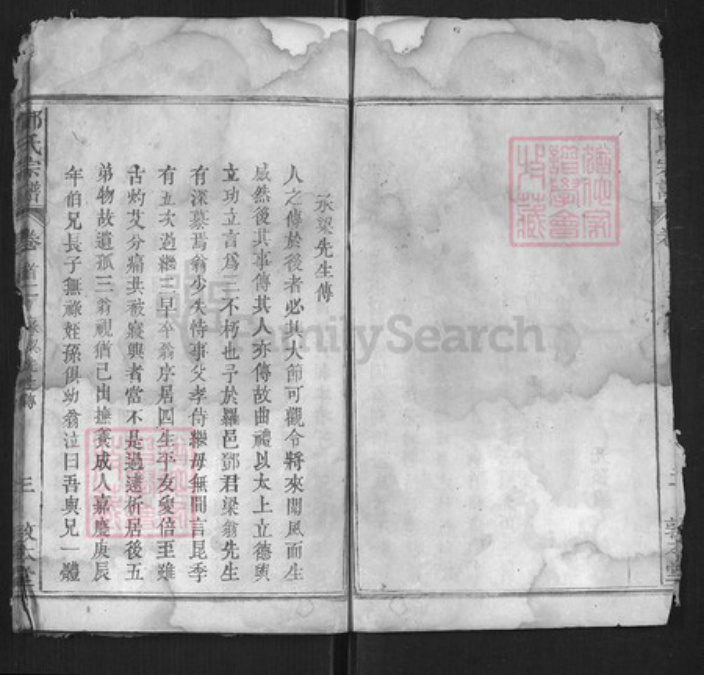 永梁先生傳
人之傳於後者必其大節可觀令將來聞風而生
感然後其事傳其人亦傳故曲禮以太上立德與
立功立言爲三不朽也予於羅邑鄧君梁翁先生
有深慕焉翁少失恃事父孝侍繼母無間言昆季
有五次過繼三早卒翁序居四生平友愛倍至雖
古灼艾分痛共被寢興者當不是過逮析居後五
弟物故遺孤三翁視猶己出撫養成人嘉慶庚辰
年伯兄長子無祿姪孫俱幼翁泣曰吾與兄一體
氏宗譜
卷首二
三
敦本堂
FamilySearch